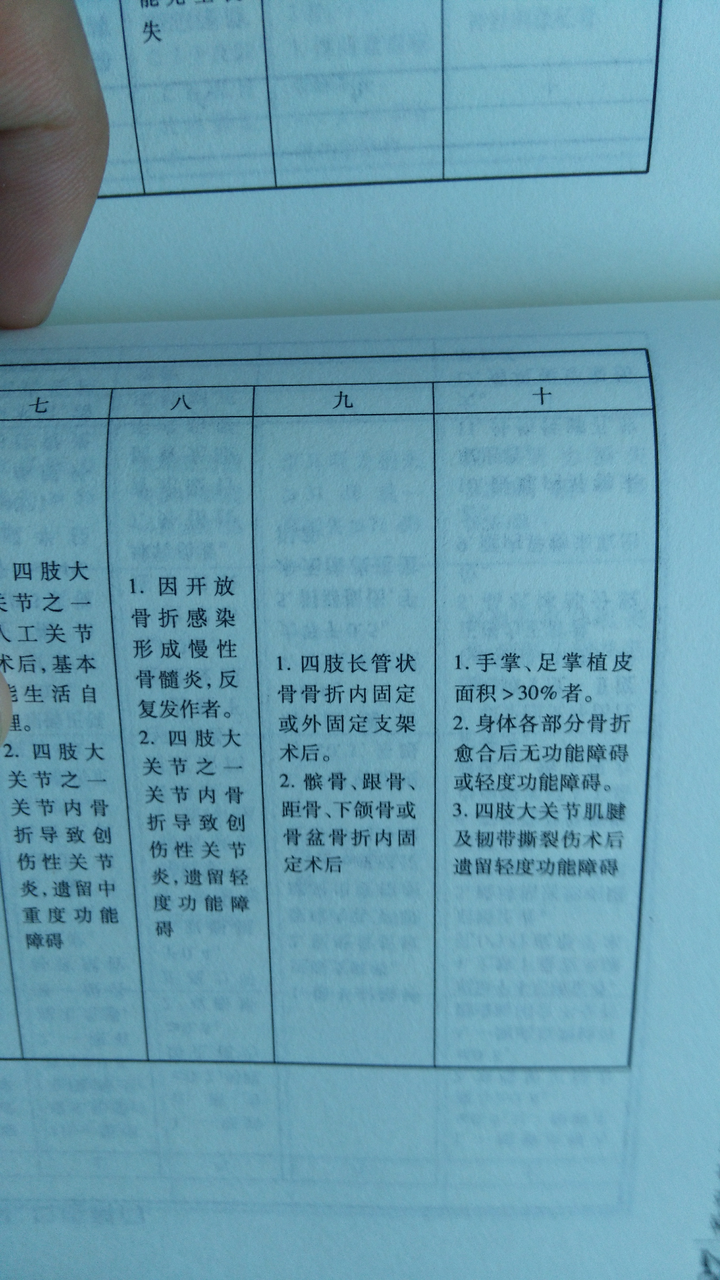 失
七
四肢大
关节之一
人工关节
术后,基本
能生活自
理。
2. 四肢大
关节之一
关节内骨
折导致创
伤性关节
炎,遗留中
重度功能
障碍
八
1. 因开放
骨折感染
形成慢性
骨髓炎,反
复发作者。
2. 四肢大
关节之一
关节内骨
折导致创
伤性关节
炎,遗留轻
度功能障
碍
九
1. 四肢长管状
骨骨折内固定
或外固定支架
术后。
2. 髌骨、跟骨、
距骨、下颌骨或
骨盆骨折内固
定术后
十
1. 手掌、足掌植皮
面积>30%者。
2. 身体各部分骨折
愈合后无功能障碍
或轻度功能障碍。
3. 四肢大关节肌腱
及韧带撕裂伤术后
遗留轻度功能障碍